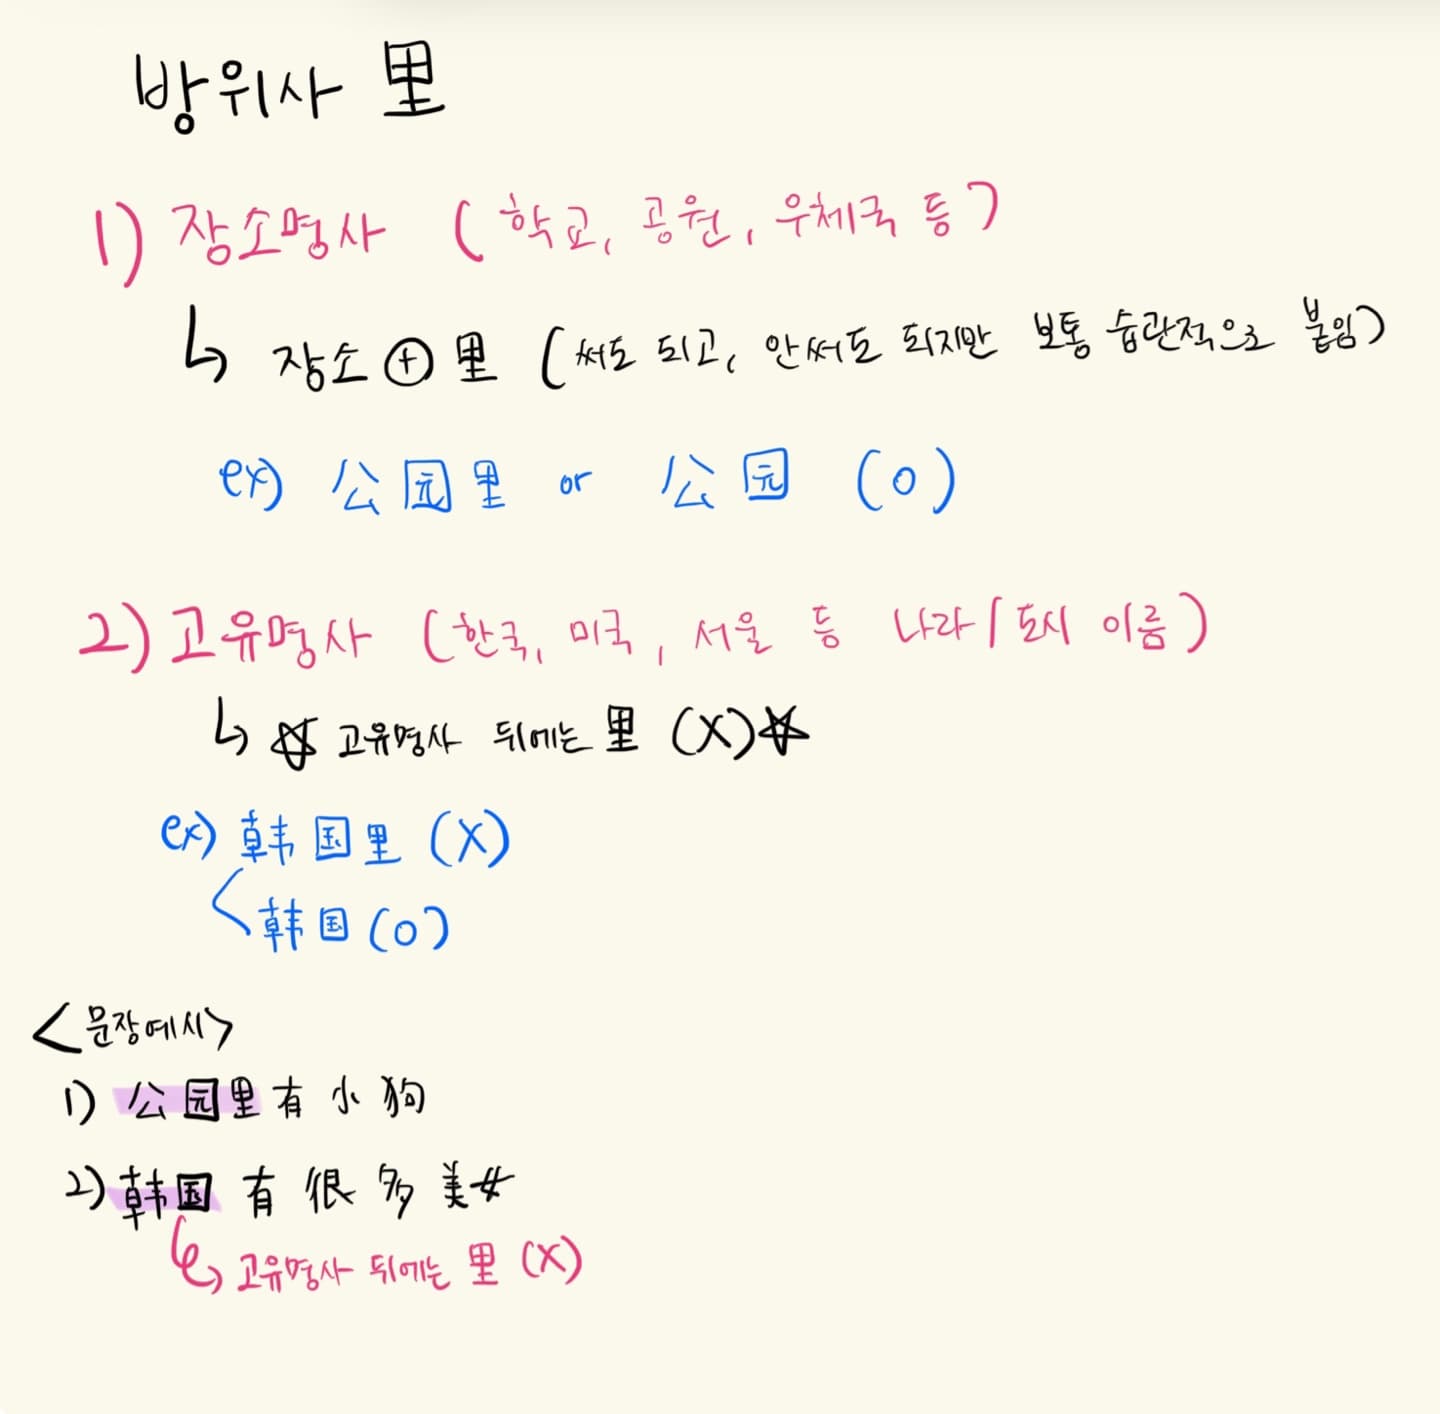 방위사 里
1) 장소명사 (학교, 공원, 우체국 등)
↳ 장소 ⊕ 里 (써도 되고, 안써도 되지만 보통 습관적으로 붙임)
ex) 公园里 or 公园 (O)
2) 고유명사 (한국, 미국, 서울 등 나라/도시 이름)
↳ ☆ 고유명사 뒤에는 里 (X)☆
ex) 韩国里 (X)
韩国 (O)
<문장예시>
1) 公园里有小狗
2) 韩国有很多美女
↳ 고유명사 뒤에는 里 (X)